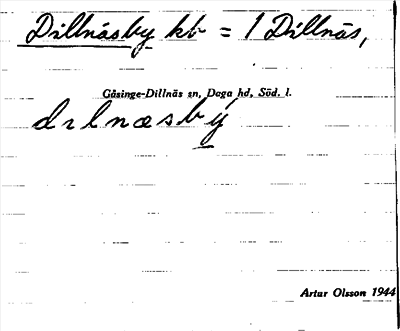 Dillnäsby kb = 1 Dillnäs,
Gåsinge-Dillnäs sn, Daga hd, Söd. l.
dɩlnæsbý
Artur Olsson 1944